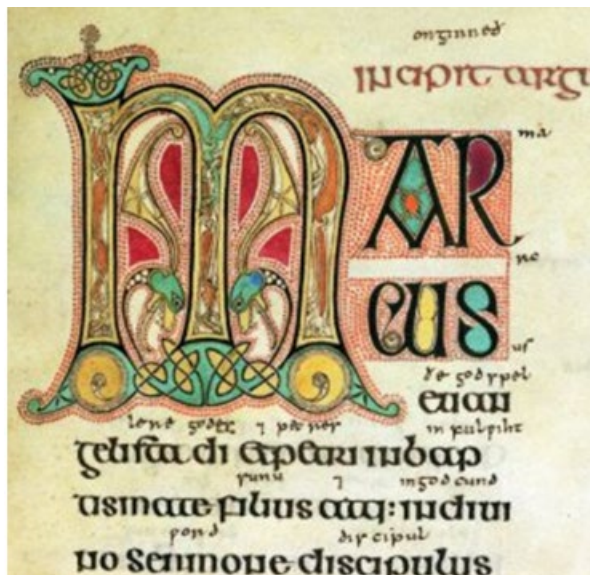 onginneð
incipit argu
MAR
ma
CUS
us
ðe godspel
euan
godes ⁊ in fulpiht
gelista di et petri in bap
sunu ⁊ in godcund
tismate filius atq: in diui
ƿord discipul
no sermone discipulus